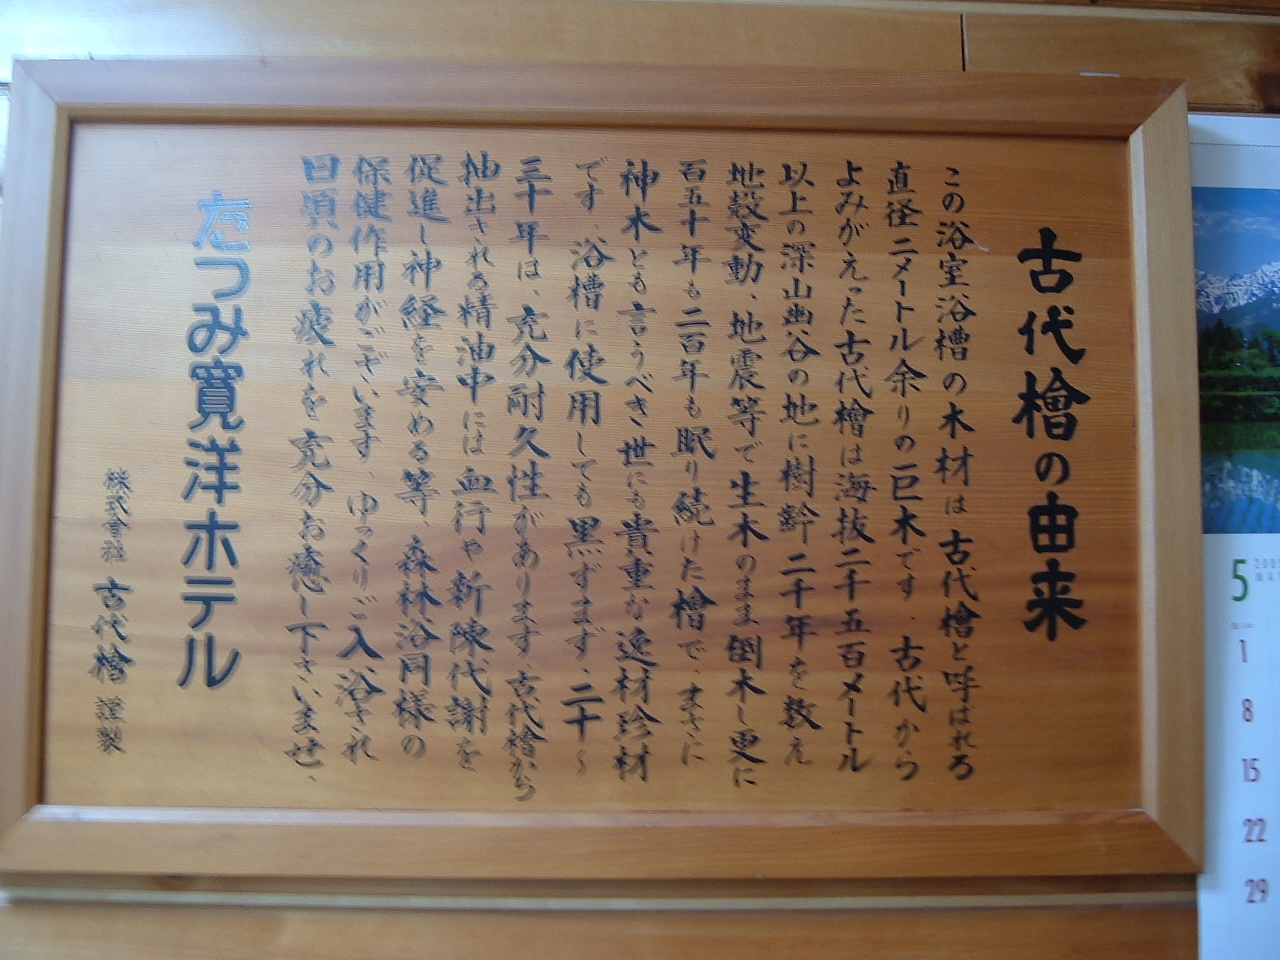 古代檜の由来
この浴室浴槽の木材は古代檜と呼ばれる
直径二メートル余りの巨木です。古代から
よみがえった古代檜は海抜二千五百メートル
以上の深山幽谷の地に樹齢二千年を数え
地殻変動、地震等で生木のまま倒木し更に
百五十年も二百年も眠り続けた檜で、まさに
神木とも言うべき世にも貴重な逸材珍材
です。浴槽に使用しても黒ずまず、二十〜
三十年は、充分耐久性があります。古代檜から
抽出される精油中には血行や新陳代謝を
促進し神経を安める等、森林浴同様の
保健作用がございます。ゆっくりご入浴され
日頃のお疲れを充分お癒し下さいませ、
たつみ寛洋ホテル
株式會社 古代檜 謹製
5
2005
1
8
15
22
29